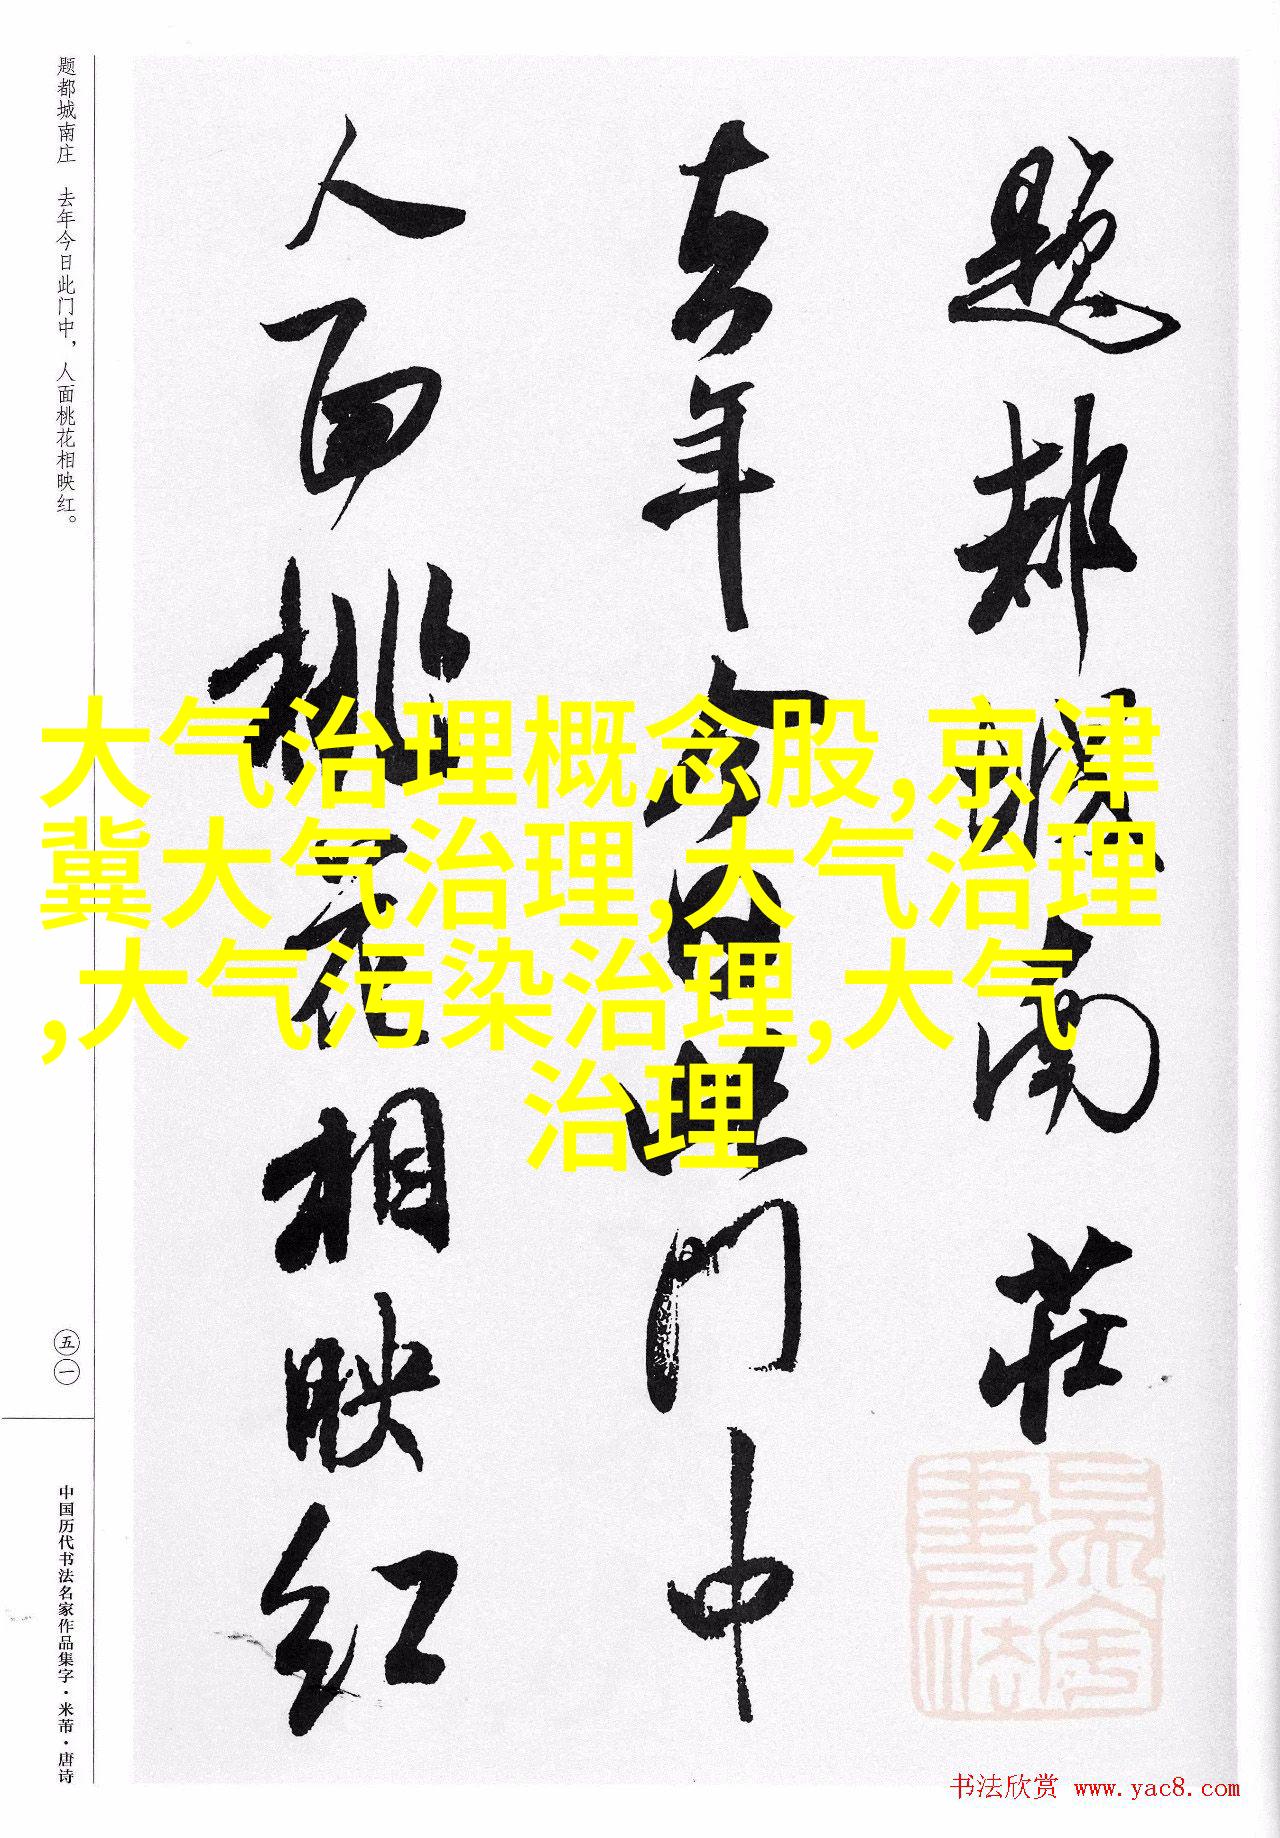 题都城南莊
去年今日此门中
人面桃花相映红
题都城南庄 去年今日此门中，人面桃花相映红。
五一
中国历代书法名家作品集字·米芾·唐诗
大气治理概念股,京津
冀大气治理,大气治理
,大气污染治理,大气
治理
书法欣赏 www.yac8.com